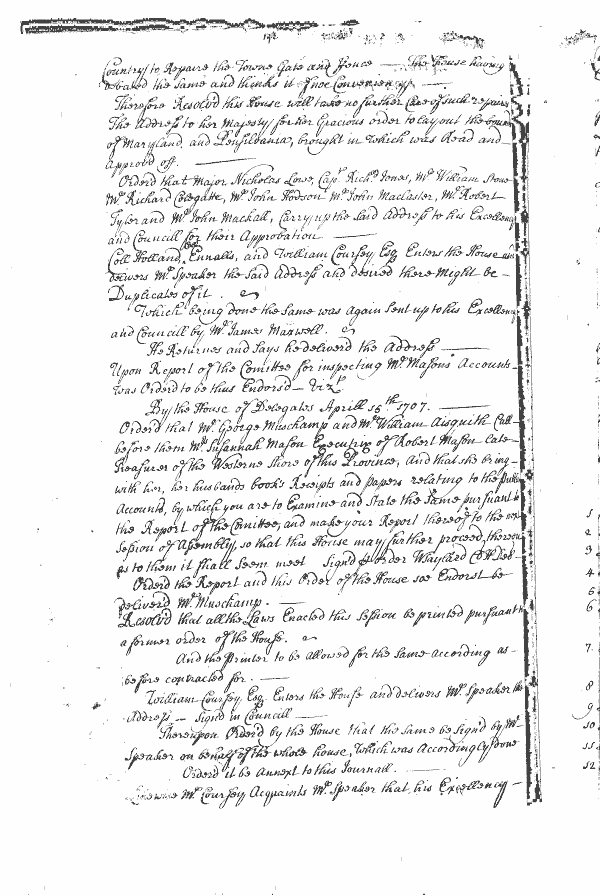 Country to Repaire the Towne Gate and ffence — The House having
debated the same and thinks it of noe Conveniency —
Therefore Resolvd this House will take no further Care of such repairs
The Address to her Majesty for her Gracious order to lay out the bounds
of Maryland, and Pensilvania, brought in Which was Read and
Approvd off. —
Orderd that Major Nicholas Lowe, Capt. Richd. Jones, Mr. William Stone
Mr. Richard Colegatte, Mr. John Hodson Mr. John Maclaster, Mr. Robert
Tyler and Mr. John Mackall, Carry up the Said Address to his Excellency
and Councill for their Approbation
Coll Holland, Ennalls, and William Coursey Esq. Enters the House and
delivers Mr. Speaker the Said Address and desired there Might be —
Duplicates of it.
Which being done the Same was again Sent up to his Excellency
and Councill by Mr. James Maxwell.
He Returnes and Says he deliverd the Address —
Upon Report of the Comittee for inspecting Mr. Masons Accounts —
was Orderd to be thus Endorsd — Vizt.
By the House of Delegates Aprill 15th 1707. —
Orderd that Mr. George Muschamp and Mr. William Aisquith Call
before them Mrs. Susannah Mason Executrix of Robert Mason late
Treasurer of the Westerne Shore of this Province, And that she bring —
with her, her husbands books Receipts and papers relating to the Publick
Accounts, by which you are to Examine and State the Same pursuant to
the Report of the Comittee, and make your Report thereof to the next
Session of Assembly, so that this House may further proceed thereon
as to them it shall Seem meet Signd p order W Taylard Cl H Del
Orderd the Report and this Order of the House soe Endorst be
deliverd Mr. Muschamp. —
Resolvd that all the Laws Enacted this Session be printed pursuant to
a former order of the House.
And the Printer to be allowed for the Same According as —
before contracted for. —
William Coursey Esq. Enters the House and delivers Mr. Speaker the
Address — Signd in Councill —
Thereupon Orderd by the House that the Same be Signd by Mr.
Speaker on behalf of the whole house, Which was Accordingly done
Orderd it be Annext to this Journall. —
Likewise Mr. Coursey Acquaints Mr. Speaker that his Excellency —
1
2
3
4
5
6
7.
8
9
10
11
12